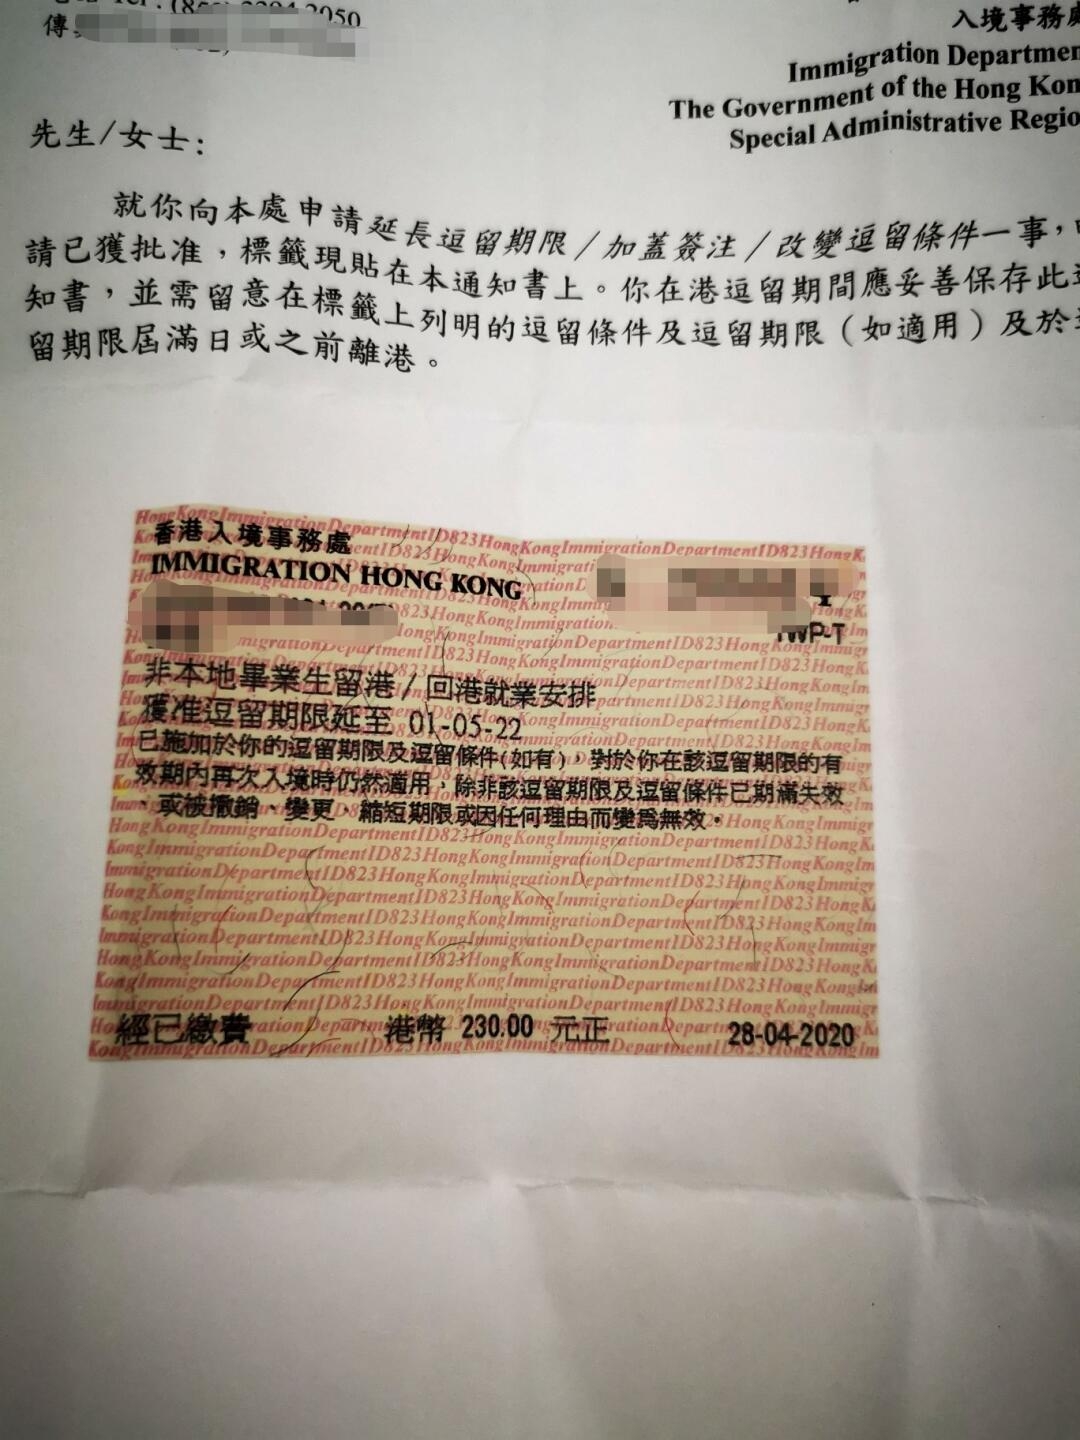 入境事務處
Immigration Departmen
The Government of the Hong Kon
Special Administrative Regio
先生/女士:
就你向本處申請延長逗留期限/加蓋簽注/改變逗留條件一事，
請已獲批准，標籤現貼在本通知書上。你在港逗留期間應妥善保存此
知書，並需留意在標籤上列明的逗留條件及逗留期限（如適用）及於
留期限屆滿日或之前離港。
香港入境事務處
IMMIGRATION HONG KONG
IWP-T
非本地畢業生留港/回港就業安排
獲准逗留期限延至 01-05-22
已施加於你的逗留期限及逗留條件(如有)，對於你在該逗留期限的有
效期內再次入境時仍然適用，除非該逗留期限及逗留條件已期滿失效
、或被撤銷、變更、縮短期限或因任何理由而變為無效。
經已繳費 港幣 230.00 元正 28-04-2020